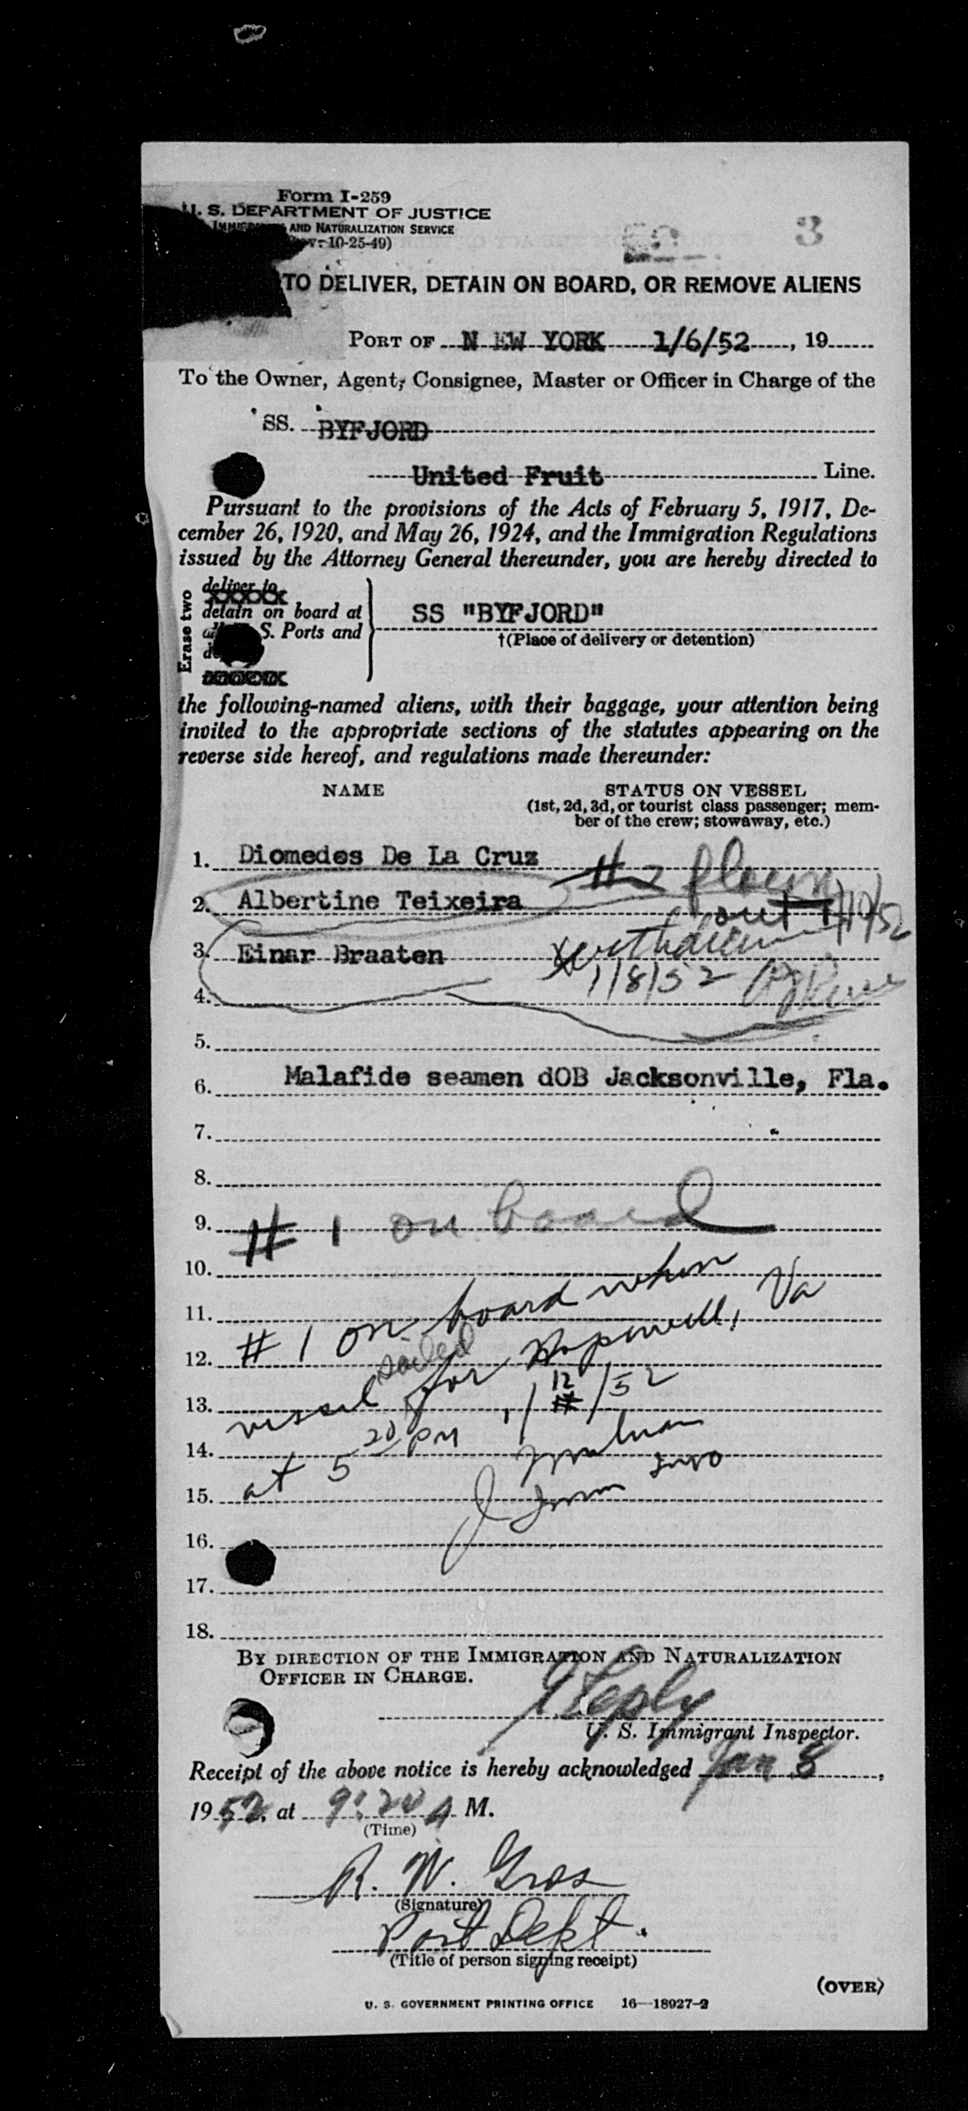 Form I-259
U. S. DEPARTMENT OF JUSTICE
IMMIGRATION AND NATURALIZATION SERVICE
10-25-49)
3
TO DELIVER, DETAIN ON BOARD, OR REMOVE ALIENS
PORT OF N EW YORK 1/6/52, 19
To the Owner, Agent, Consignee, Master or Officer in Charge of the
SS. BYFJORD
United Fruit Line.
Pursuant to the provisions of the Acts of February 5, 1917, De-
cember 26, 1920, and May 26, 1924, and the Immigration Regulations
issued by the Attorney General thereunder, you are hereby directed to
Erase two
deliver to
detain on board at SS "BYFJORD"
S. Ports and †(Place of delivery or detention)
the following-named aliens, with their baggage, your attention being
invited to the appropriate sections of the statutes appearing on the
reverse side hereof, and regulations made thereunder:
NAME STATUS ON VESSEL
(1st, 2d, 3d, or tourist class passenger; mem-
ber of the crew; stowaway, etc.)
1. Diomedes De La Cruz #2
2. Albertine Teixeira out 1/10/52
3. Einar Braaten withdrawn
4. 1/8/52
5.
6. Malafide seamen dOB Jacksonville, Fla.
7.
8.
9. # 1 on board
10.
11. # 1 on board when
12. vessel sailed for Hopewell, Va
13. at 5 20 PM 1/12/52
14.
15.
16.
17.
18.
BY DIRECTION OF THE IMMIGRATION AND NATURALIZATION
OFFICER IN CHARGE.
U. S. Immigrant Inspector.
Receipt of the above notice is hereby acknowledged Jan 8,
1952, at 9:20 A M.
(Time)
R. W. Gros
(Signature)
Port Dept.
(Title of person signing receipt)
(OVER)
U. S. GOVERNMENT PRINTING OFFICE 16—18927-2